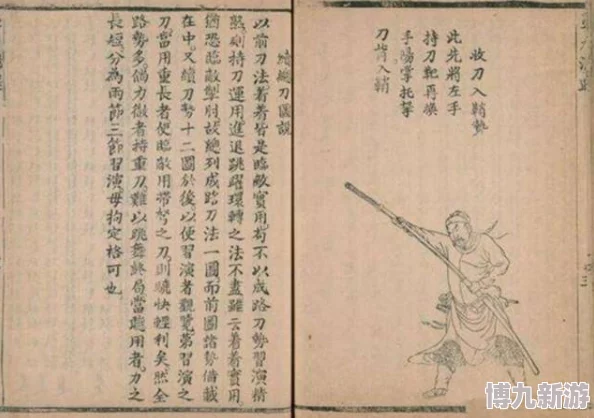 收刀入鞘勢
此先將左手
持刀靶再換
手陽掌托拏
刀背入鞘
續總刀圖說
以前刀法着着皆是臨敵實用苟不以成路刀勢習演精
熟則持刀運用進退跳躍環轉之法不盡雖云着着實用
猶恐臨敵掣肘故總列成路刀法一圖而前圖諸勢備載
在中又續刀勢十二圖於後以便習演者觀覽第習演之
刀當用重長者便臨敵用帶弩之刀則驍快輕利矣然全
路勢多倘力微者持重刀難以跳舞終局當隨用者刀之
長短分為兩節三節習演毋拘定格可也
博九新游